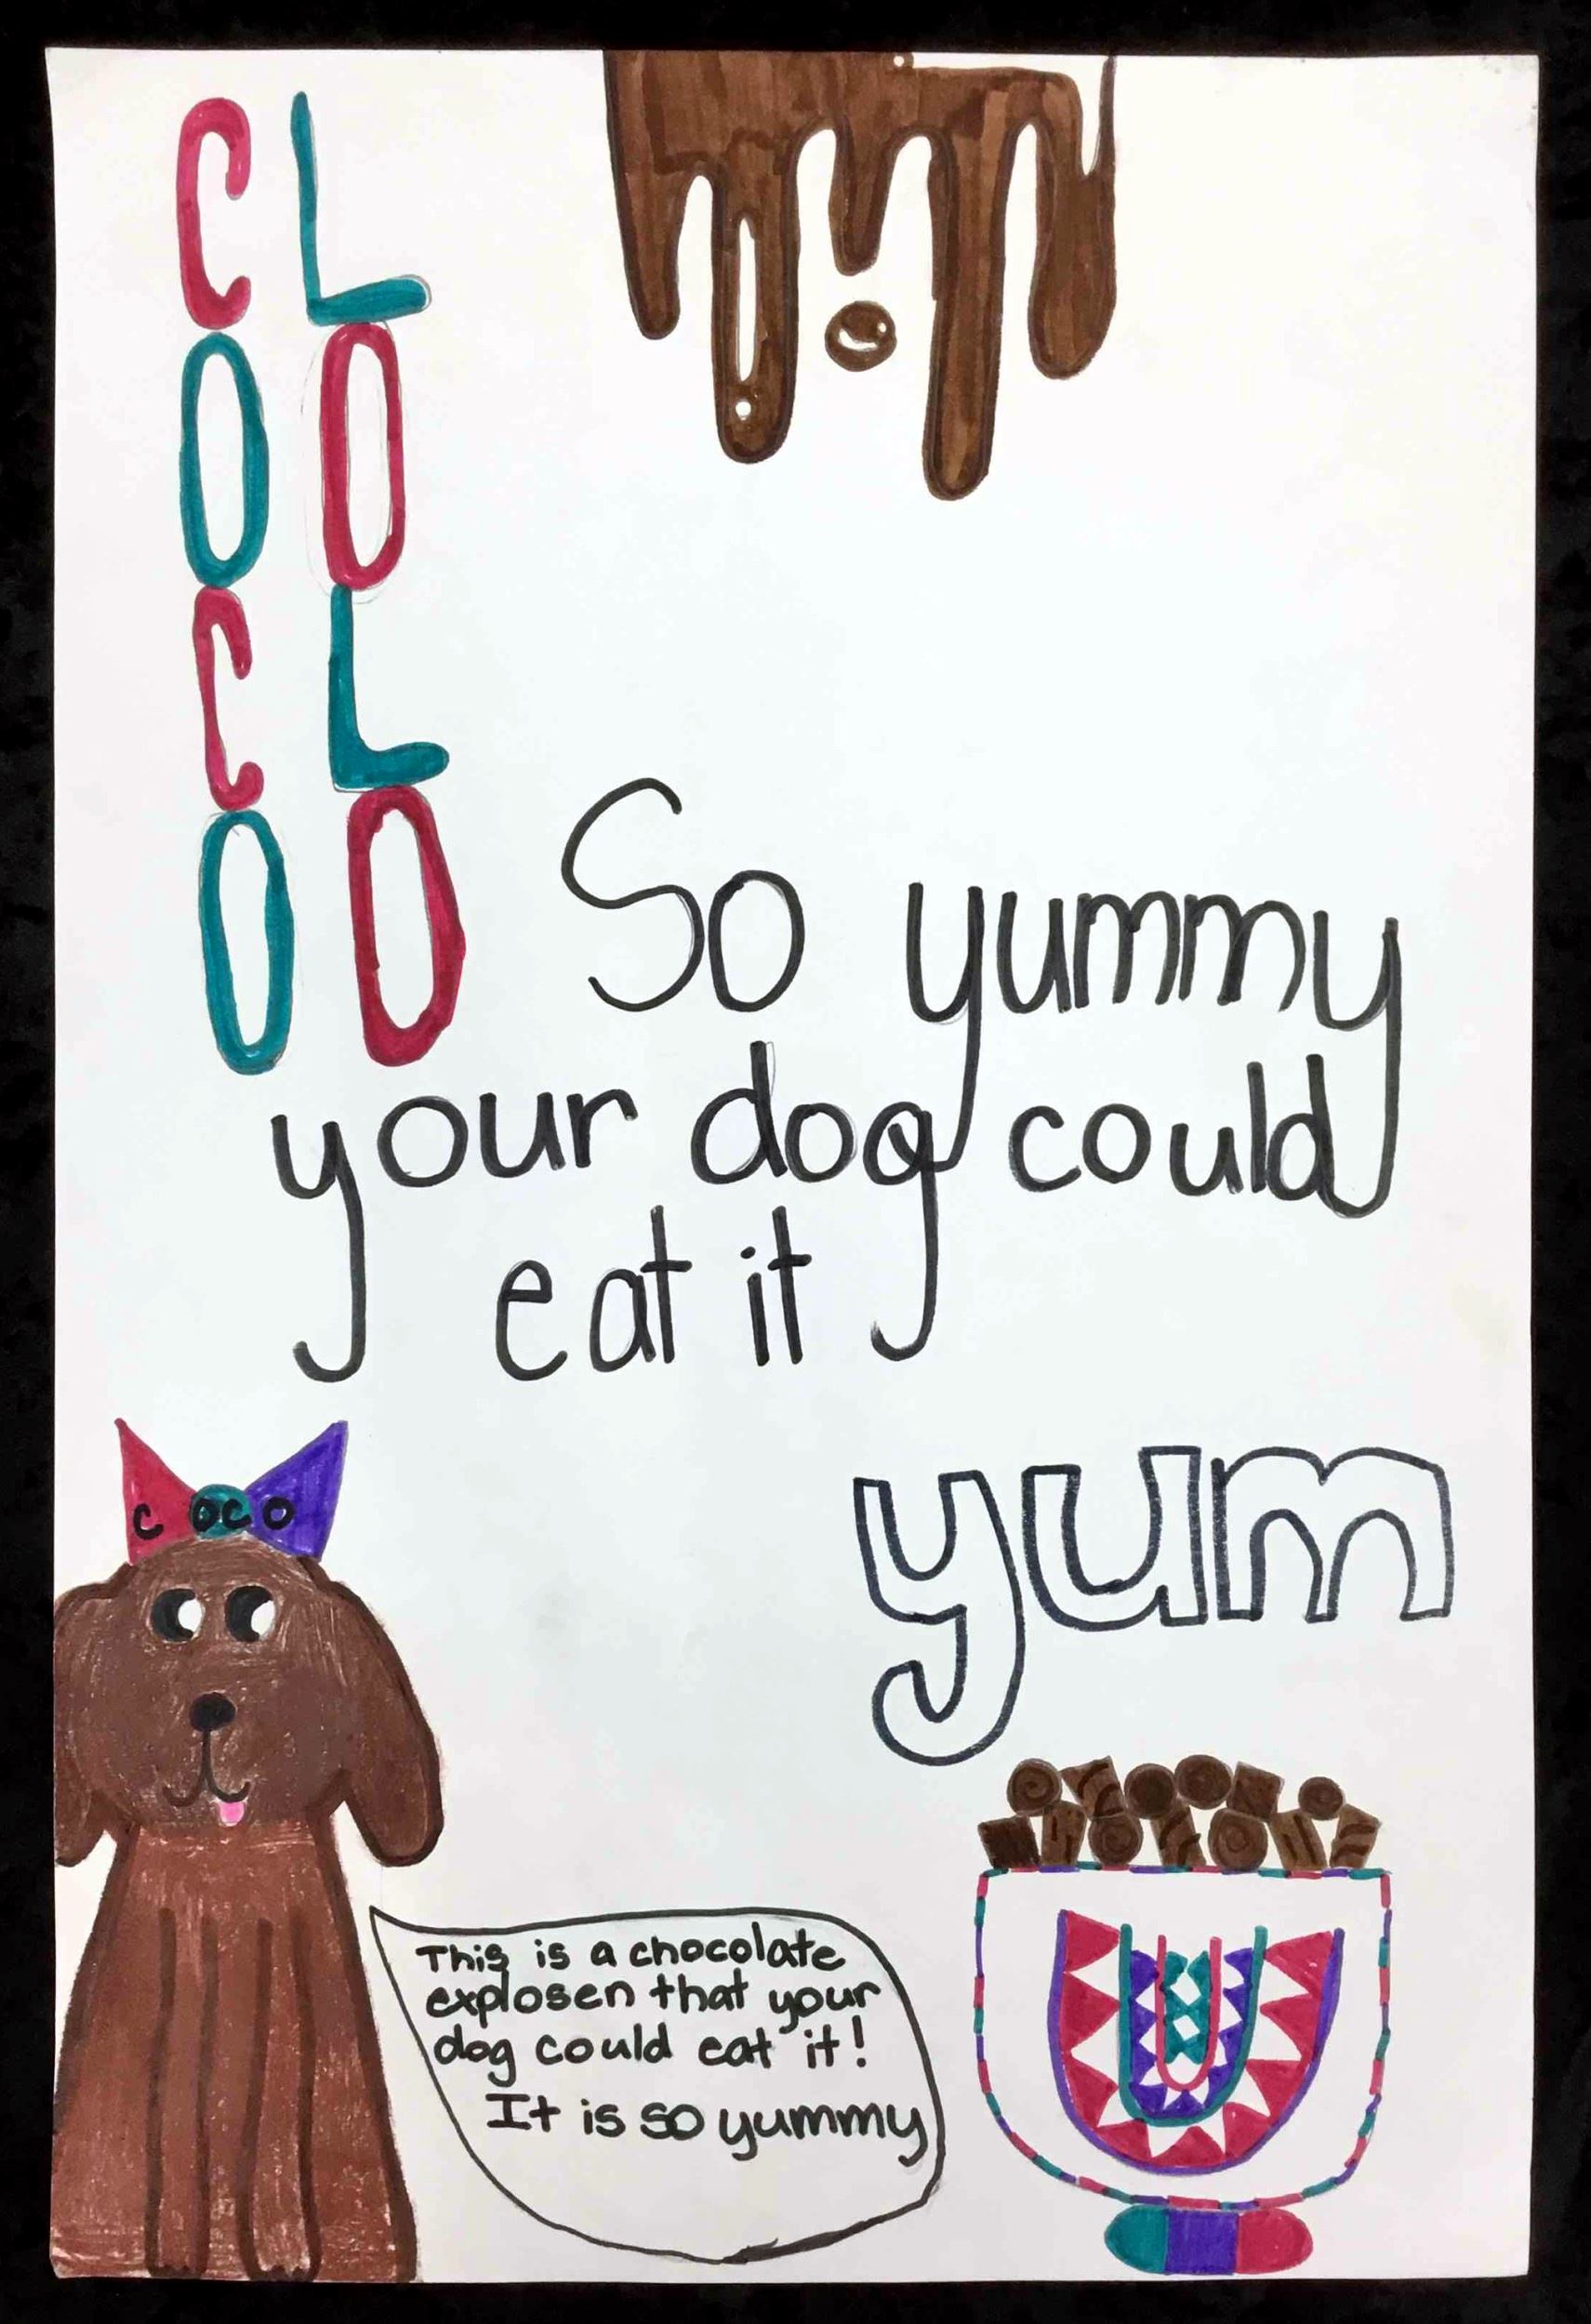 COCO
LOLO
So yummy
your dog could
eat it
COCO
yum
This is a chocolate
explosen that your
dog could eat it!
It is so yummy